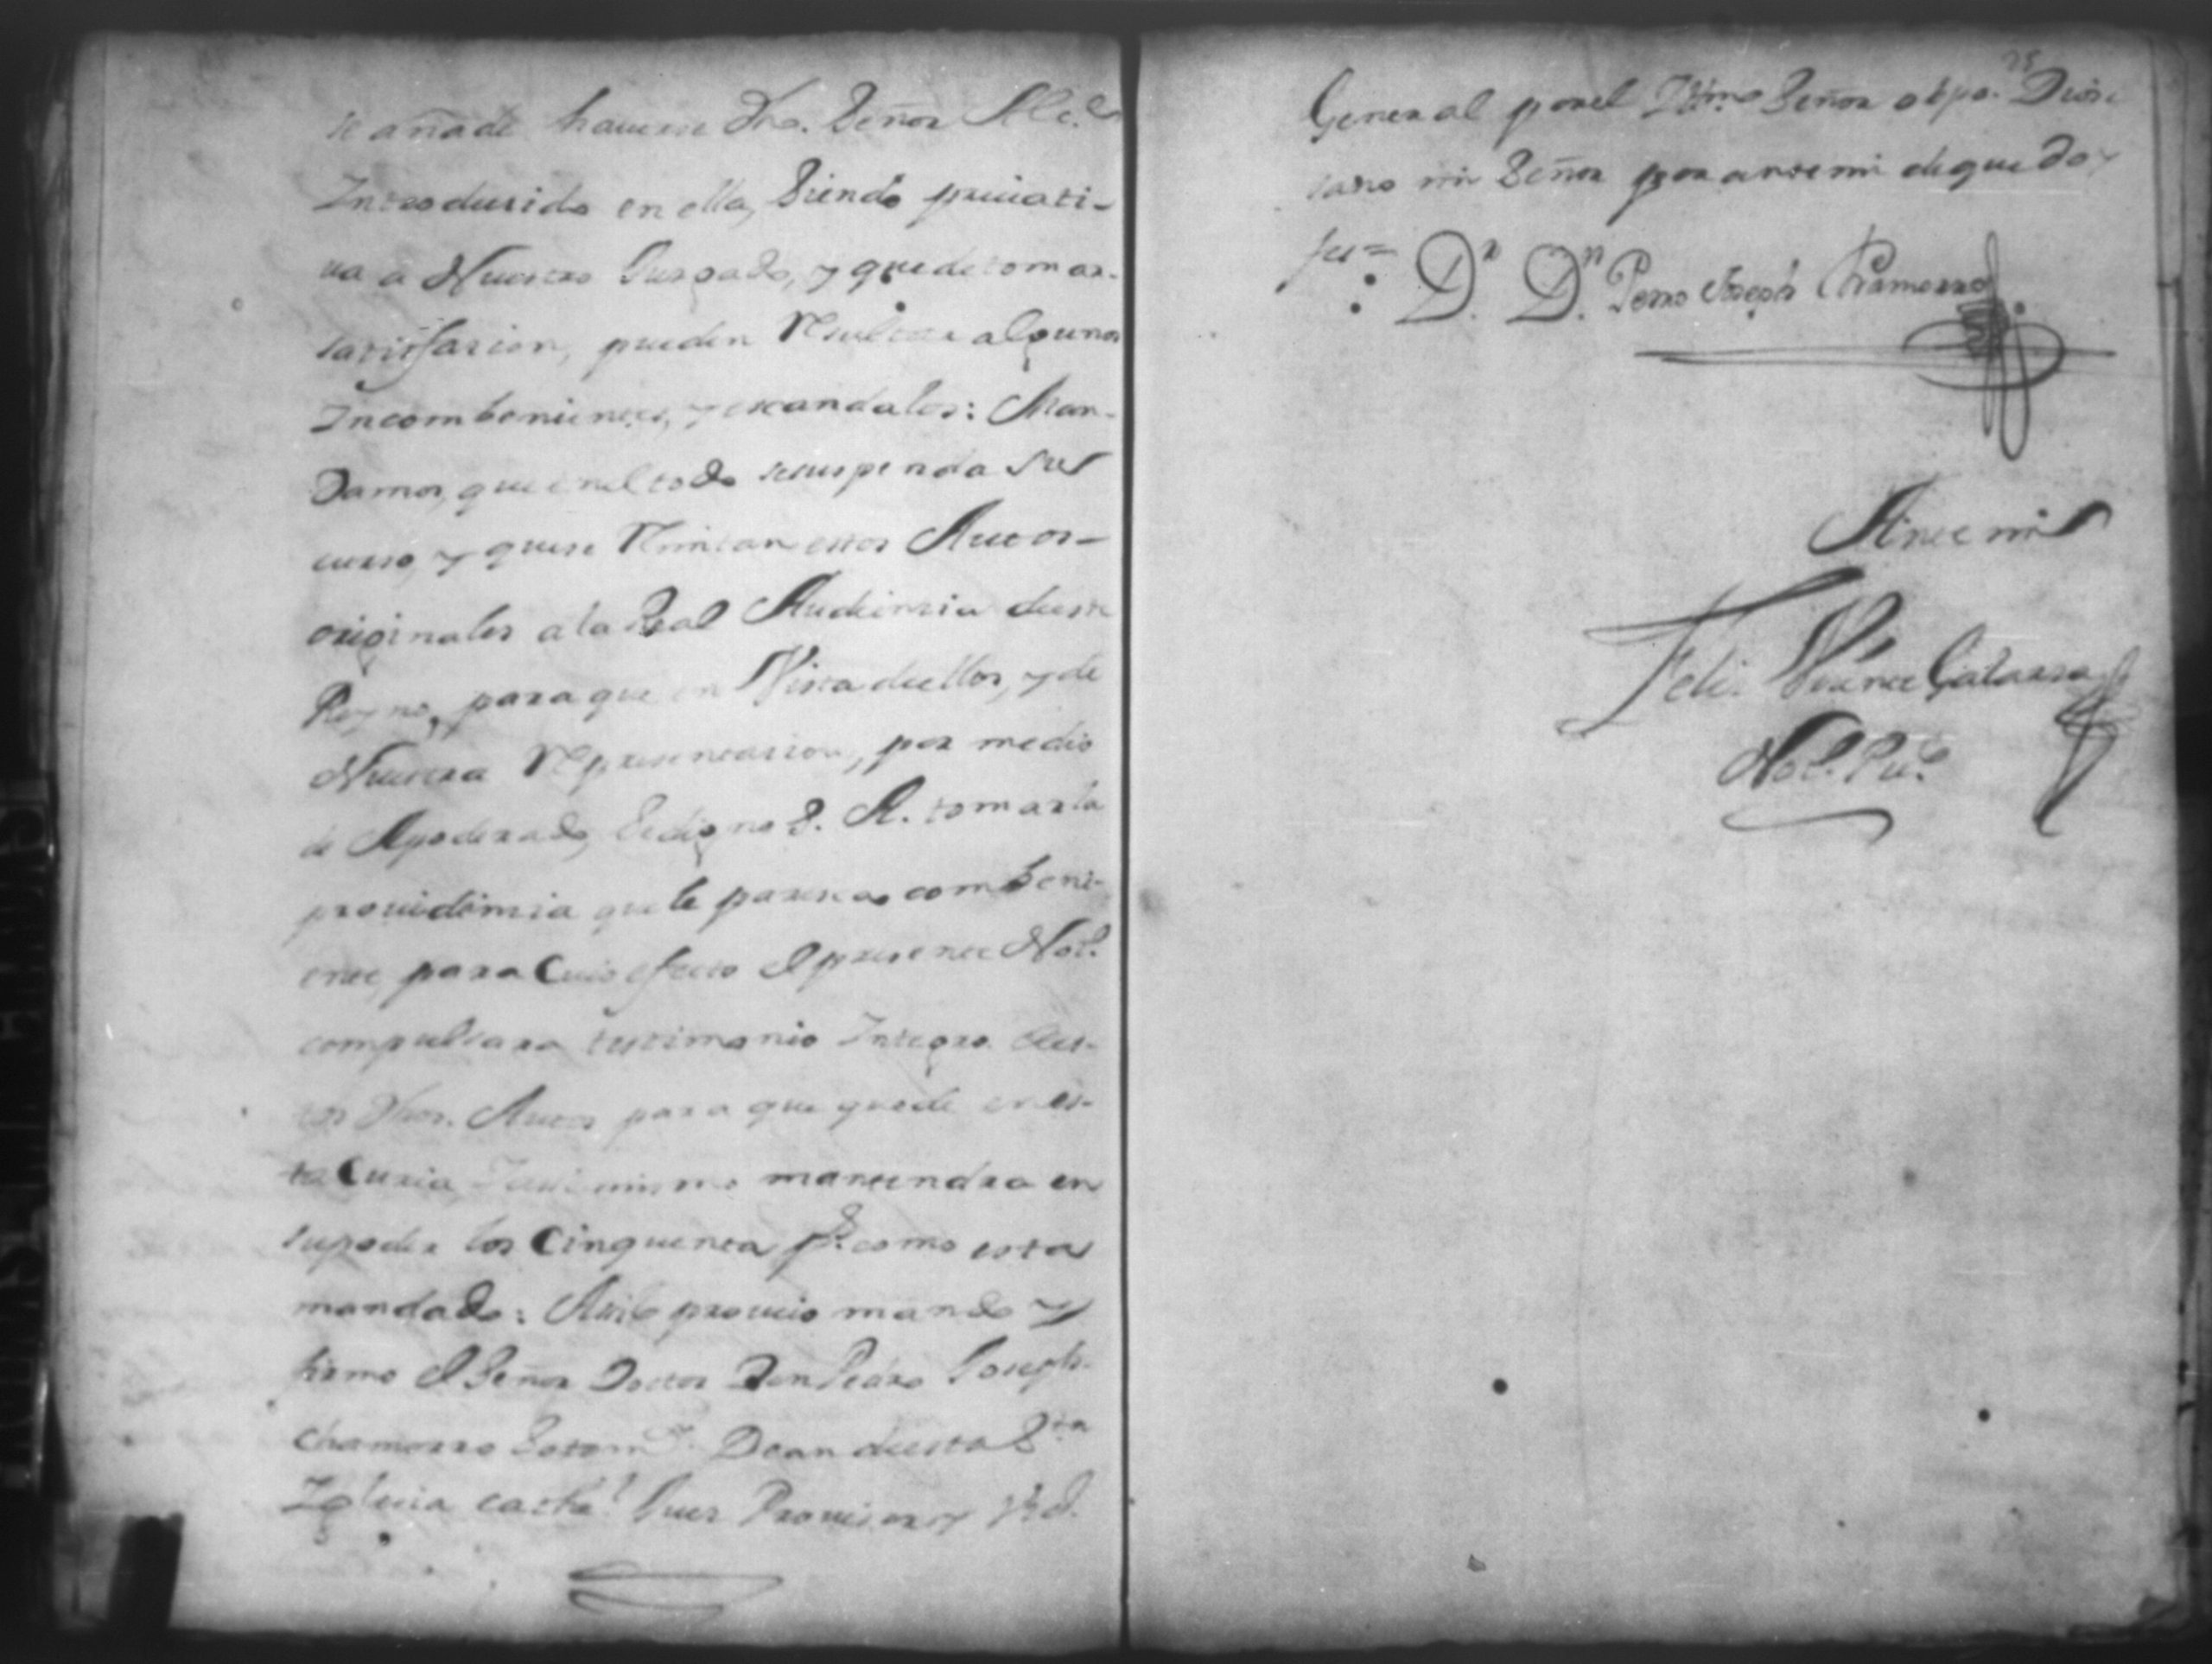 se añade haverse dho. Señor Alc.e
Introdusido en ella, Siendo privati-
va a Nuestro Jusgado, y que de tomar
satisfasion, pueden Resultar algunos
Incombenientes, y escandalos: Man-
damos, que en el todo se suspenda su
curso, y que se Remitan estos Autos
originales a la Real Audiensia deeste
Reyno, para que en Vista deellos, y de
Nuestra Representasion, por medio
de Apoderado, Se digne S. A. tomar la
providensia que le paresca combeni-
ente, para Cuio efecto el presente Not.
compulsara testimonio Integro des-
tos dhos. Autos para que quede en es-
ta Curia, Y asimismo mantendra en
su poder los Cinquenta p.s como esta
mandado: Asi lo proveio mando y
firmo el Señor Doctor Don Pedro Joseph
Chamorro Dean deesta S.ta
Iglecia cathe.l Jues Provisor y Vic.
25
General por el Illmo. Señor obpo. Dios
sano mi Señor por ante mi de que doy
fee=
D.r D.n Pedro Joseph Chamorro
Ante mi
Felis Galarsa
Not. Pu.co